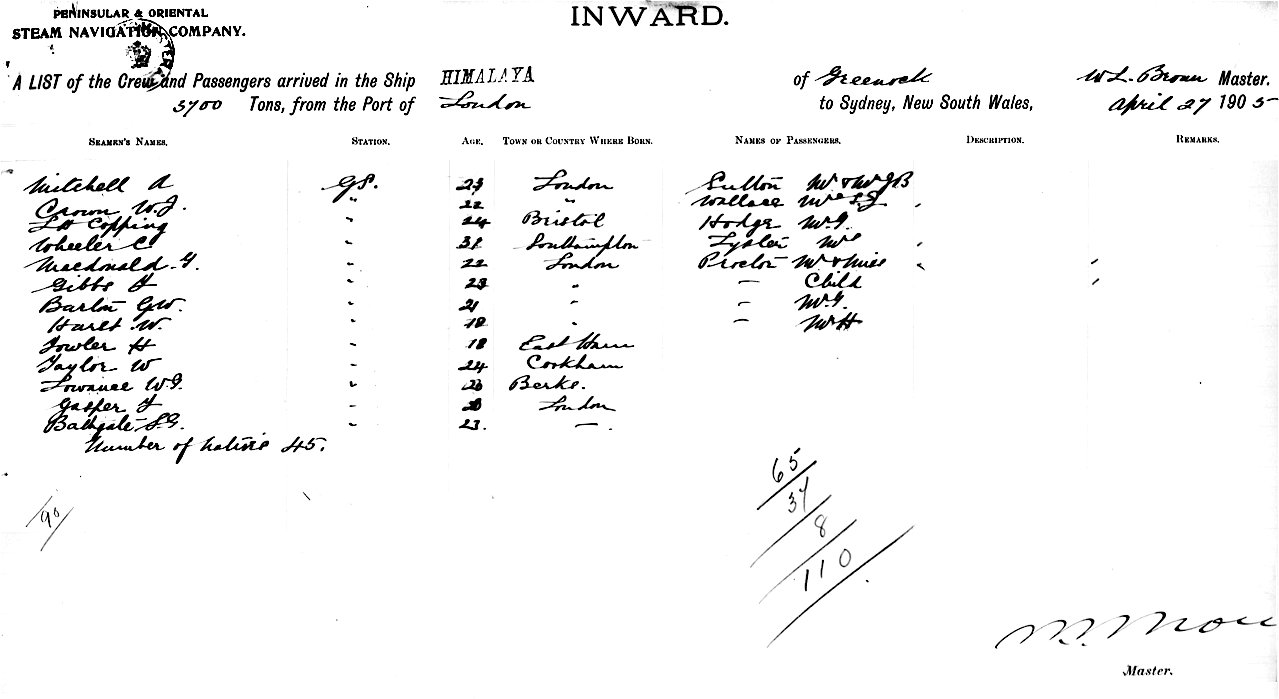 PENINSULAR & ORIENTAL
STEAM NAVIGATION COMPANY.
INWARD.
A LIST of the Crew and Passengers arrived in the Ship HIMALAYA of Greenock W L Brown Master.
5700 Tons, from the Port of London to Sydney, New South Wales, April 27 1905
SEAMEN'S NAMES. STATION. AGE. TOWN OR COUNTRY WHERE BORN. NAMES OF PASSENGERS. DESCRIPTION. REMARKS.
Mitchell A G.S. London Sutton Mr & Mrs J B
Crown W.J. " 22 " Wallace
Copping " 24 Bristol Hodge Mr G.
Wheeler C " 31 Southampton Lyster Mr
Macdonald " 22 London Procter Mr & Miss
Gibbs " 23 " — Child
Barton G.W. " 21 " —
W. " "  — Mr H
Fowler H " 18 East Ham
Taylor W " 24 Cookham
W.G. " Berks.
Gasper " London
Bathgate " 23. —
Number of natives 45.
65
37
8
110
90
Master.